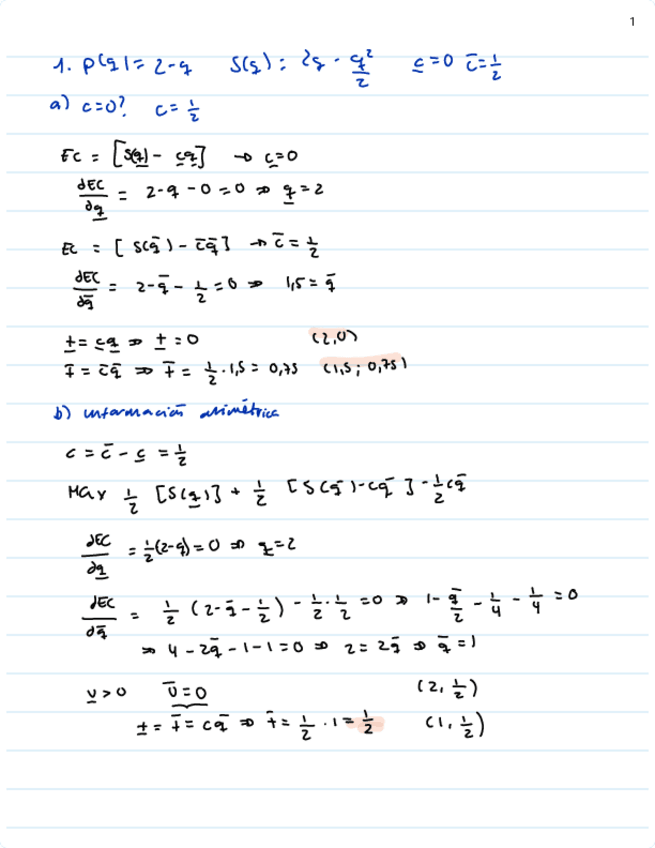 1
1. P(q) = 2-q S(q): 2q - q²/2 c̲=0 c̄=1/2
a) c=0? c=1/2
EC = [S(q̲) - c̲q̲] → c̲=0
dEC/dq̲ = 2-q-0=0 ⇒ q̲=2
EC = [S(q̄) - c̄q̄] → c̄=1/2
dEC/dq̄ = 2-q̄-1/2=0 ⇒ 1,5=q̄
t̲=c̲q̲ ⇒ t̲=0 (2,0)
t̄=c̄q̄ ⇒ t̄=1/2·1,5=0,75 (1,5; 0,75)
b) información asimétrica
c=c̄-c̲=1/2
Max 1/2 [S(q̲)] + 1/2 [S(q̄)-cq̄] - 1/2cq̄
dEC/dq̲ = 1/2(2-q)=0 ⇒ q=2
dEC/dq̄ = 1/2(2-q̄-1/2) - 1/2·1/2=0 ⇒ 1-q̄/2-1/4-1/4=0
⇒ 4-2q̄-1-1=0 ⇒ 2=2q̄ ⇒ q̄=1
U̲>0 Ū=0 (2,1/2)
t̲=t̄=cq̄ ⇒ t̄=1/2·1=1/2 (1,1/2)